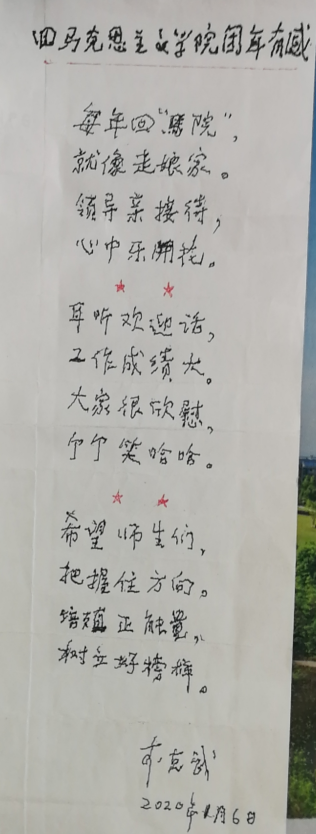 回马克思主义学院团年有感
每年回“馬院”,
就像走娘家。
领导亲接待,
心中乐開花。
耳听欢迎话,
工作成绩大。
大家很欣慰,
个个笑哈哈。
希望师生们,
把握住方向。
培殖正能量,
树立好榜样。
2020年1月6日